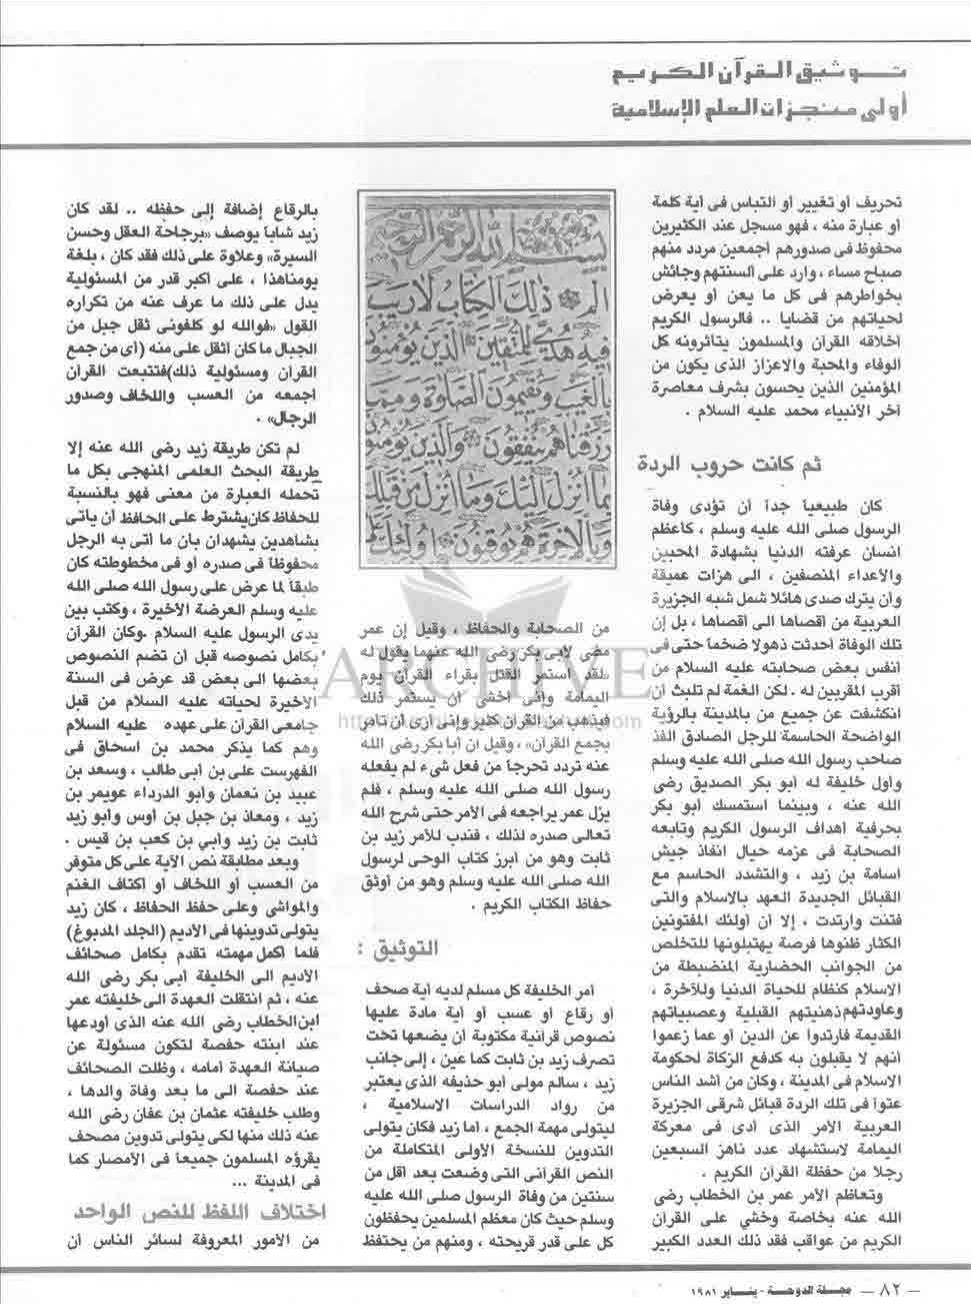 تـوثيق القرآن الكريم
أولى منجزات العلم الإسلامية
تحريف أو تغيير أو التباس فى أية كلمة
أو عبارة منه ، فهو مسجل عند الكثيرين
محفوظ فى صدورهم أجمعين مردد منهم
صباح مساء ، وارد على ألسنتهم وجائش
بخواطرهم فى كل ما يعن أو يعرض
لحياتهم من قضايا .. فالرسول الكريم
أخلاقه القرآن والمسلمون يتأثرونه كل
الوفاء والمحبة والاعزاز الذى يكون من
المؤمنين الذين يحسون بشرف معاصرة
آخر الأنبياء محمد عليه السلام .
ثم كانت حروب الردة
كان طبيعياً جداً أن تؤدى وفاة
الرسول صلى الله عليه وسلم ، كأعظم
انسان عرفته الدنيا بشهادة المحبين
والأعداء المنصفين ، الى هزات عميقة
وأن يترك صدى هائلا شمل شبه الجزيرة
العربية من أقصاها الى أقصاها ، بل إن
تلك الوفاة أحدثت ذهولا ضخماً حتى فى
أنفس بعض صحابته عليه السلام من
أقرب المقربين له . لكن الغمة لم تلبث أن
انكشفت عن جميع من بالمدينة بالرؤية
الواضحة الحاسمة للرجل الصادق الفذ
صاحب رسول الله صلى الله عليه وسلم
وأول خليفة له أبو بكر الصديق رضى
الله عنه ، وبينما استمسك أبو بكر
بحرفية أهداف الرسول الكريم وتابعه
الصحابة فى عزمه حيال انفاذ جيش
أسامة بن زيد ، والتشدد الحاسم مع
القبائل الجديدة العهد بالاسلام والتى
فتنت وارتدت ، إلا أن أولئك المفتونين
الكثار ظنوها فرصة يهتبلونها للتخلص
من الجوانب الحضارية المنضبطة من
الاسلام كنظام للحياة الدنيا وللآخرة ،
وعاودتهم ذهنيتهم القبلية وعصبياتهم
القديمة فارتدوا عن الدين أو عما زعموا
أنهم لا يقبلون به كدفع الزكاة لحكومة
الاسلام فى المدينة ، وكان من أشد الناس
عتواً فى تلك الردة قبائل شرقى الجزيرة
العربية الأمر الذى أدى فى معركة
اليمامة لاستشهاد عدد ناهز السبعين
رجلا من حفظة القرآن الكريم .
وتعاظم الأمر عمر بن الخطاب رضى
الله عنه بخاصة وخشي على القرآن
الكريم من عواقب فقد ذلك العدد الكبير
بسم الله الرحمن الرحيم
الم ذلك الكتاب لا ريب
فيه هدى للمتقين الذين يؤمنون
بالغيب ويقيمون الصلوة ومما
رزقناهم ينفقون والذين يؤمنو
بما أنزل إليك وما أنزل من قبلك
وبالاخرة هم يوقنون اولئك
من الصحابة والحفاظ ، وقيل إن عمر
مضى لأبى بكر رضى الله عنهما يقول له
«لقد استمر القتل بقراء القرآن يوم
اليمامة وإنى أخشى أن يستمر ذلك
فيذهب من القرآن كثير وإنى أرى أن تأمر
بجمع القرآن» ، وقيل أن أبا بكر رضى الله
عنه تردد تحرجاً من فعل شىء لم يفعله
رسول الله صلى الله عليه وسلم ، فلم
يزل عمر يراجعه فى الأمر حتى شرح الله
تعالى صدره لذلك ، فندب للأمر زيد بن
ثابت وهو من أبرز كتاب الوحى لرسول
الله صلى الله عليه وسلم وهو من أوثق
حفاظ الكتاب الكريم .
التوثيق :
أمر الخليفة كل مسلم لديه أية صحف
أو رقاع أو عسب أو أية مادة عليها
نصوص قرآنية مكتوبة أن يضعها تحت
تصرف زيد بن ثابت كما عين ، إلى جانب
زيد ، سالم مولى أبو حذيفه الذى يعتبر
من رواد الدراسات الاسلامية ،
ليتولى مهمة الجمع ، أما زيد فكان يتولى
التدوين للنسخة الأولى المتكاملة من
النص القرآنى التى وضعت بعد أقل من
سنتين من وفاة الرسول صلى الله عليه
وسلم حيث كان معظم المسلمين يحفظون
كل على قدر قريحته ، ومنهم من يحتفظ
بالرقاع إضافة إلى حفظه .. لقد كان
زيد شاباً يوصف «برجاحة العقل وحسن
السيرة» وعلاوة على ذلك فقد كان ، بلغة
يومناهذا ، على أكبر قدر من المسئولية
يدل على ذلك ما عرف عنه من تكراره
القول «فوالله لو كلفونى ثقل جبل من
الجبال ما كان أثقل على منه (أى من جمع
القرآن ومسئولية ذلك)فتتبعت القرآن
أجمعه من العسب واللخاف وصدور
الرجال» .
لم تكن طريقة زيد رضى الله عنه إلا
طريقة البحث العلمى المنهجى بكل ما
تحمله العبارة من معنى فهو بالنسبة
للحفاظ كان يشترط على الحافظ أن يأتى
بشاهدين يشهدان بأن ما أتى به الرجل
محفوظاً فى صدره أو فى مخطوطته كان
طبقاً لما عرض على رسول الله صلى الله
عليه وسلم العرضة الأخيرة ، وكتب بين
يدى الرسول عليه السلام .وكان القرآن
بكامل نصوصه قبل أن تضم النصوص
بعضها الى بعض قد عرض فى السنة
الأخيرة لحياته عليه السلام من قبل
جامعى القرآن على عهده عليه السلام
وهم كما يذكر محمد بن اسحاق فى
الفهرست على بن أبى طالب ، وسعد بن
عبيد بن نعمان وأبو الدرداء عويمر بن
زيد ، ومعاذ بن جبل بن أوس وأبو زيد
ثابت بن زيد وأبي بن كعب بن قيس .
وبعد مطابقة نص الآية على كل متوفر
من العسب أو اللخاف أو أكتاف الغنم
والمواشى وعلى حفظ الحفاظ ، كان زيد
يتولى تدوينها فى الأديم (الجلد المدبوغ)
فلما أكمل مهمته تقدم بكامل صحائف
الأديم الى الخليفة أبى بكر رضى الله
عنه ، ثم انتقلت العهدة الى خليفته عمر
ابن الخطاب رضى الله عنه الذى أودعها
عند ابنته حفصة لتكون مسئولة عن
صيانة العهدة أمامه ، وظلت الصحائف
عند حفصة الى ما بعد وفاة والدها ،
وطلب خليفته عثمان بن عفان رضى الله
عنه ذلك منها لكى يتولى تدوين مصحف
يقرؤه المسلمون جميعاً فى الأمصار كما
فى المدينة ...
اختلاف اللفظ للنص الواحد
من الأمور المعروفة لسائر الناس أن
ARCHIVE
— ٨٢ — مجـلة الدوحـة - يناير ١٩٨١